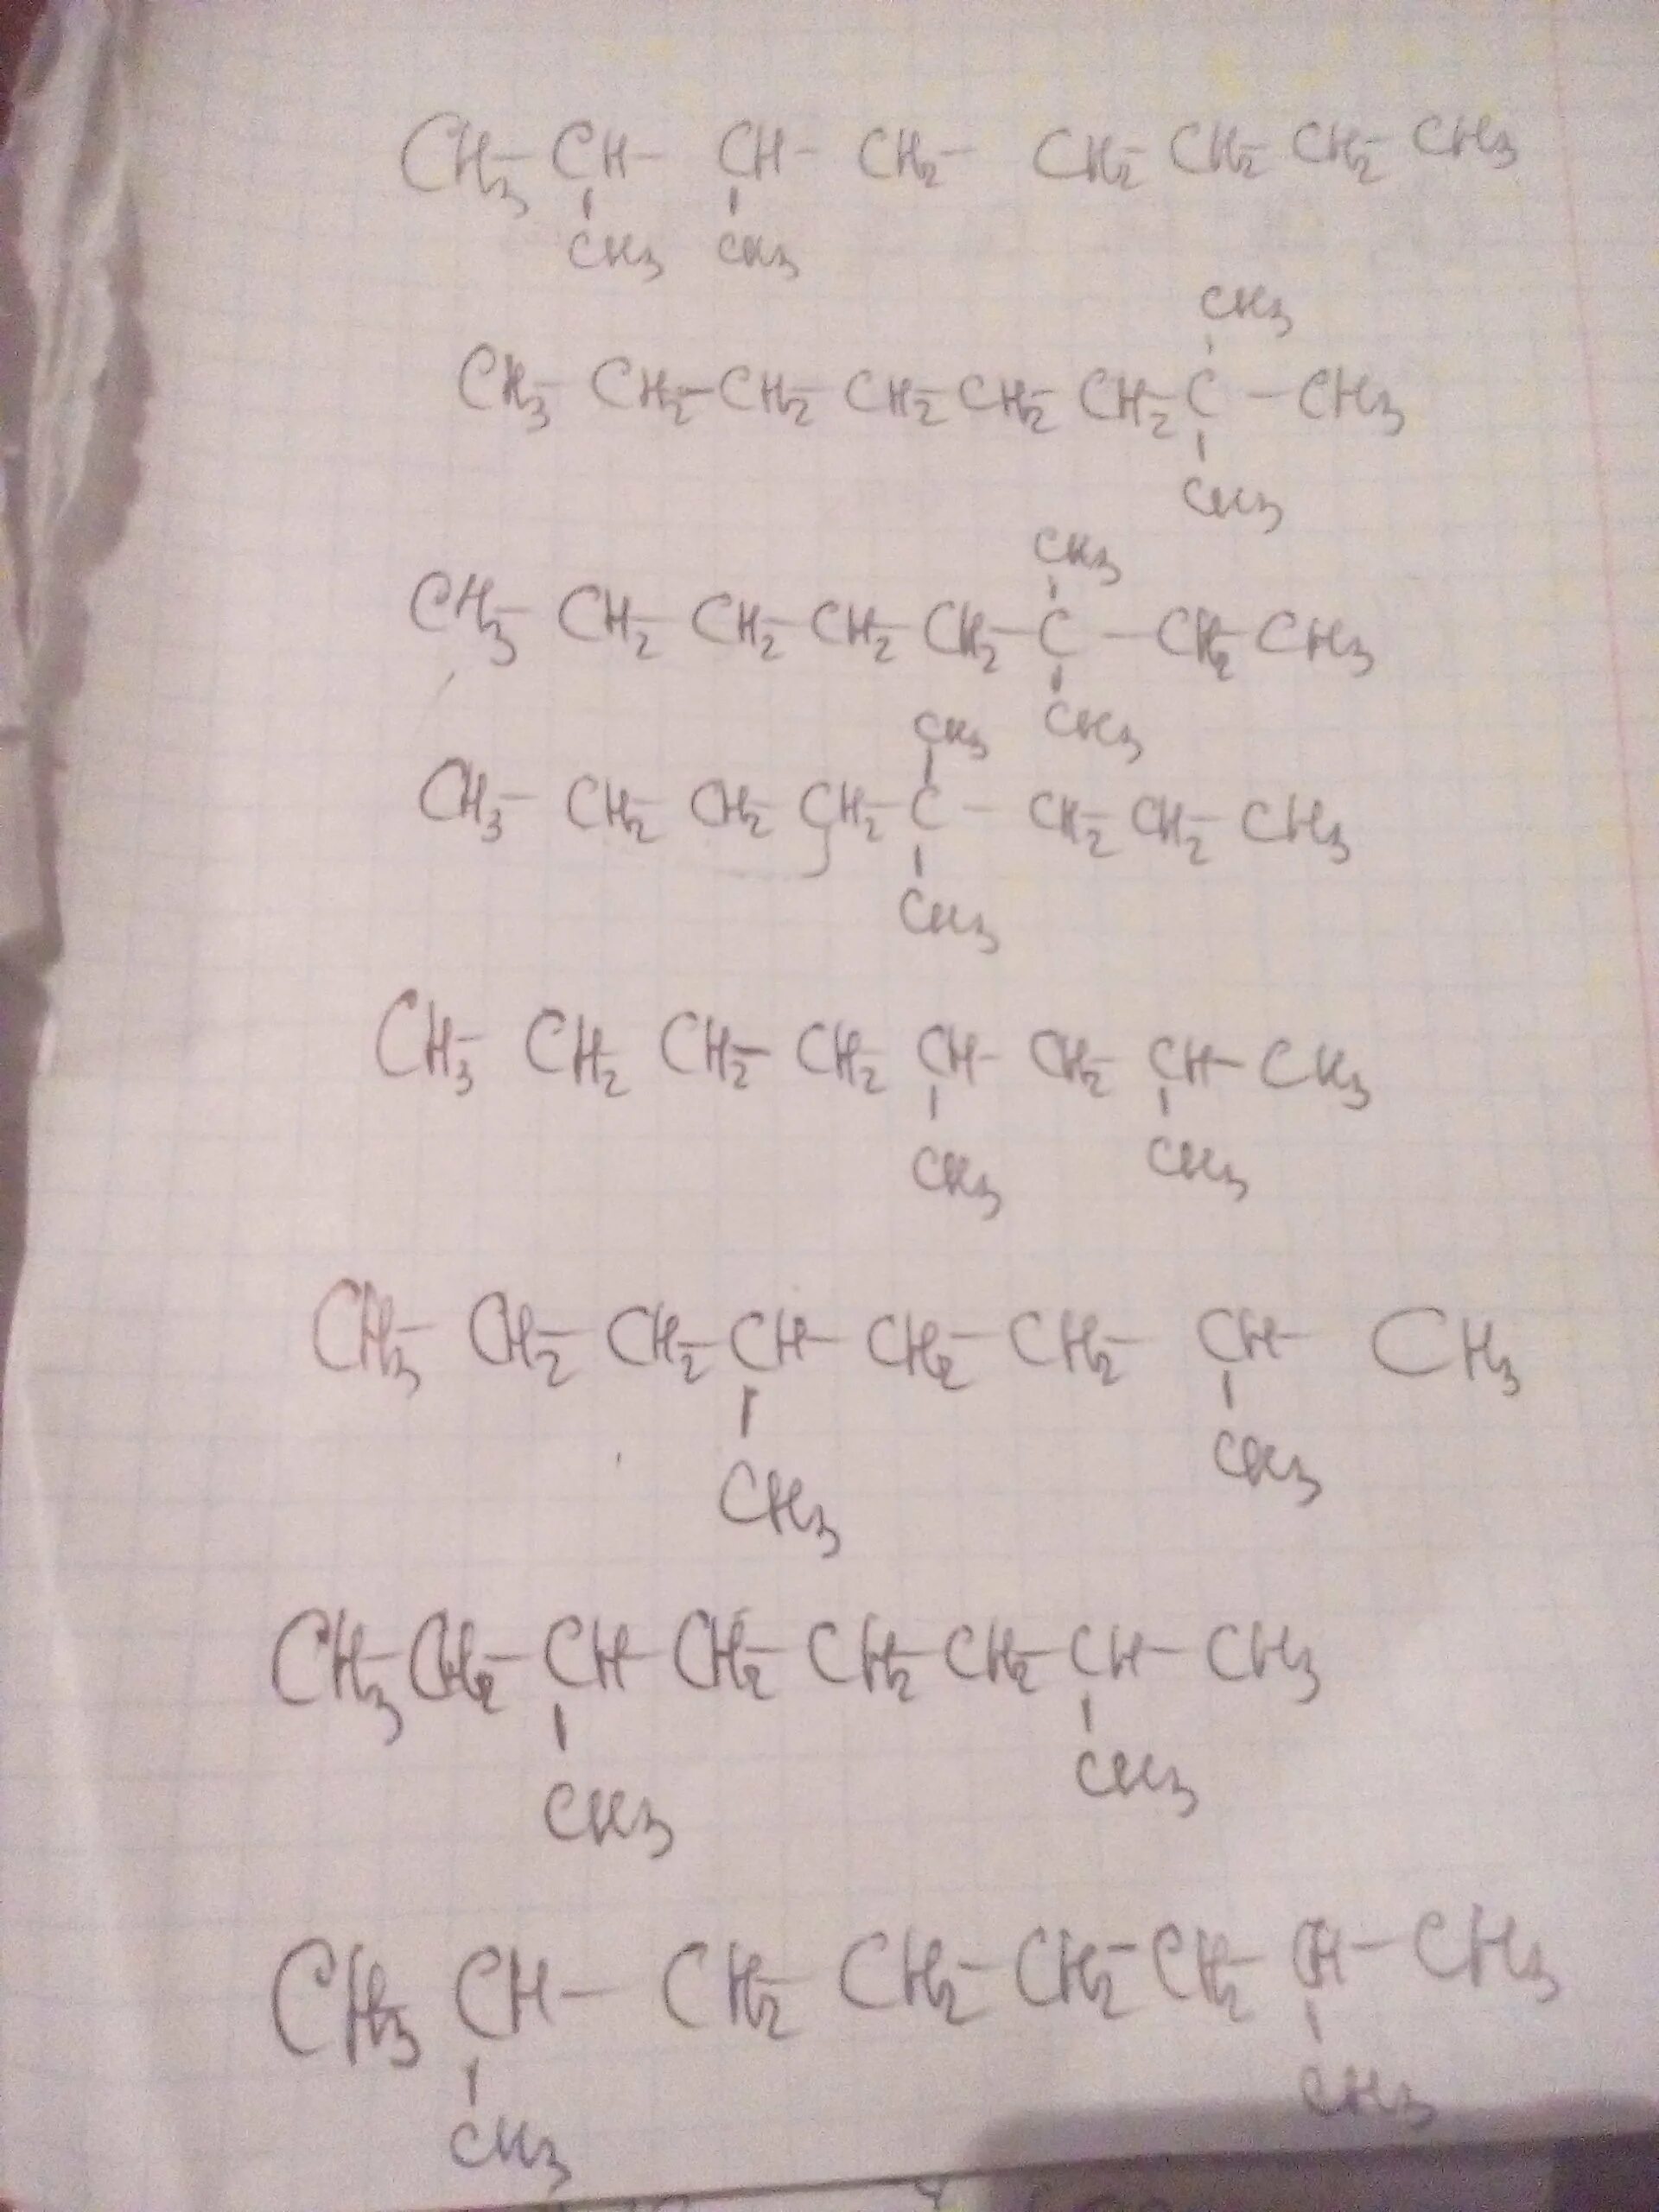 CH3-CH-CH-CH2-CH2-CH2-CH2-CH3
CH3 CH3
CH3
CH3-CH2-CH2-CH2-CH2-CH2-C-CH3
CH3
CH3
CH3-CH2-CH2-CH2-CH2-C-CH2-CH3
CH3
CH3
CH3-CH2-CH2-CH2-C-CH2-CH2-CH3
CH3
CH3-CH2-CH2-CH2-CH-CH2-CH-CH3
CH3 CH3
CH3-CH2-CH2-CH-CH2-CH2-CH-CH3
CH3 CH3
CH3-CH2-CH-CH2-CH2-CH2-CH-CH3
CH3 CH3
CH3 CH-CH2-CH2-CH2-CH2-CH-CH3
CH3 CH3